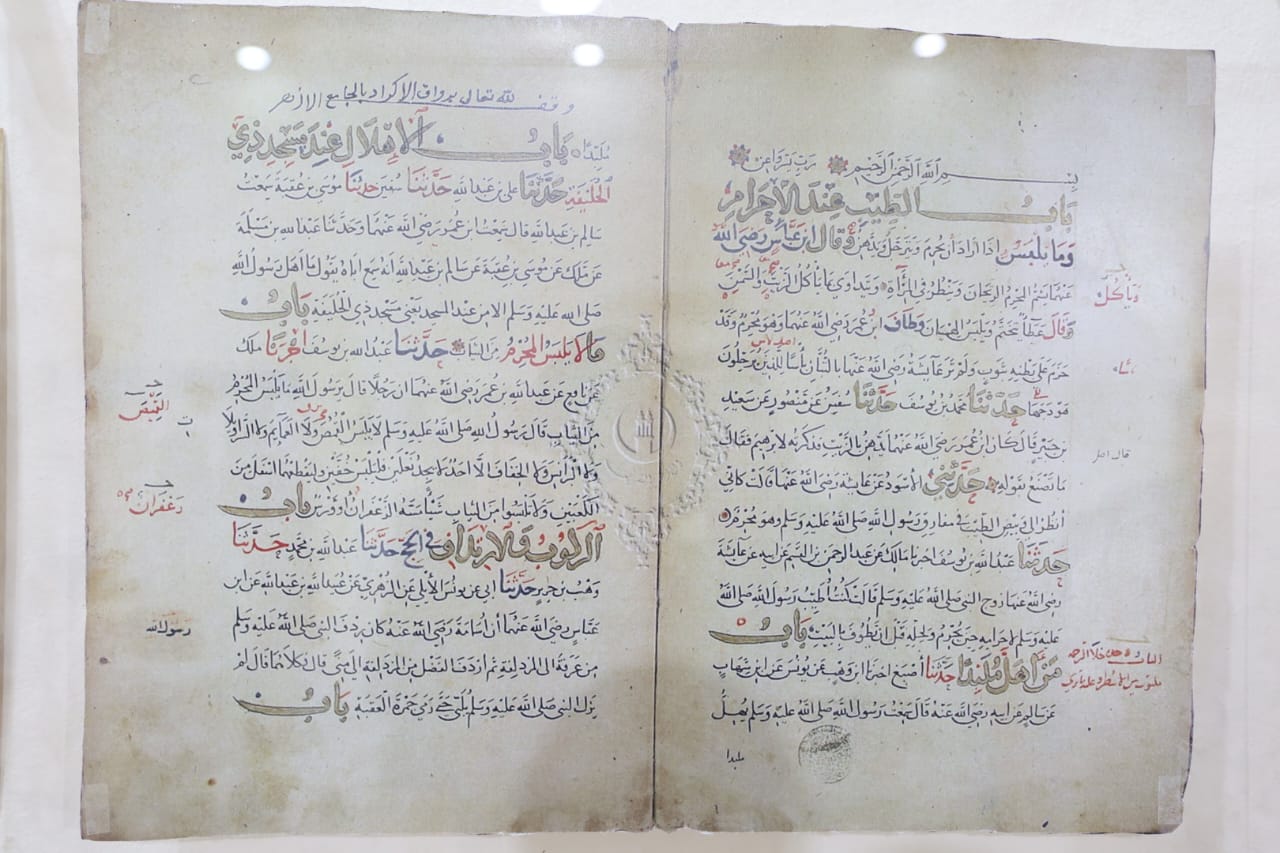 بسم الله الرحمن الرحيم رب يسر واعن
باب الطيب عند الإحرام
وما يلبس اذا اراد أن يحرم ويترجل ويدهن وقال ابن عباس رضي الله
عنهما يشم المحرم الريحان وينظر في المرآة ويتداوى بما يأكل الزيت والسمن
وقال عطاء يتختم ويلبس الهميان وطاف ابن عمر رضي الله عنهما وهو محرم وقد
حزم على بطنه بثوب ولم تر عائشة رضي الله عنها بالتبان بأسا للذين يرحلون
هودجها حدثنا محمد بن يوسف حدثنا سفين عن منصور عن سعيد
بن جبير قال كان ابن عمر رضي الله عنهما يدهن بالزيت فذكرته لابرهيم فقال
ما تصنع بقوله حدثني الأسود عن عائشة رضي الله عنها قالت كأني
أنظر إلى وبيص الطيب في مفارق رسول الله صلى الله عليه وسلم وهو محرم
حدثنا عبد الله بن يوسف اخبرنا مالك عن عبد الرحمن بن القسم عن ابيه عن عائشة
رضي الله عنها زوج النبي صلى الله عليه وسلم قالت كنت أطيب رسول الله صلى الله
عليه وسلم لإحرامه حين يحرم ولحله قبل ان يطوف بالبيت باب
من أهل ملبدا حدثنا أصبغ اخبرنا ابن وهب عن يونس عن ابن شهاب
عن سالم عن ابيه رضي الله عنه قال سمعت رسول الله صلى الله عليه وسلم يهل
ملبدا
ويأكل
قال اصل
وقف لله تعالى برواق الاكراد بالجامع الازهر
ملبدا باب الإهلال عند مسجد ذي
الحليفة حدثنا علي بن عبد الله حدثنا سفين حدثنا موسى بن عقبة سمعت
سالم بن عبد الله قال سمعت ابن عمر رضي الله عنهما وحدثنا عبد الله بن مسلمة
عن ملك عن موسى بن عقبة عن سالم بن عبد الله أنه سمع اباه يقول ما أهل رسول الله
صلى الله عليه وسلم الا من عند المسجد يعني مسجد ذي الحليفة باب
ما لا يلبس المحرم من الثياب حدثنا عبد الله بن يوسف اخبرنا ملك
عن نافع عن عبد الله بن عمر رضي الله عنهما ان رجلا قال يرسول الله ما يلبس المحرم
من الثياب قال رسول الله صلى الله عليه وسلم لا يلبس القمص ولا العمايم ولا السراويلات
ولا البرانس ولا الخفاف الا احد لا يجد نعلين فليلبس خفين وليقطعهما اسفل من
الكعبين ولا تلبسوا من الثياب شيئا مسه الزعفران او ورس باب
الركوب والارتداف في الحج حدثنا عبد الله بن محمد حدثنا
وهب بن جرير حدثنا ابي عن يونس الأيلي عن الزهري عن عبيد الله بن عبد الله عن ابن
عباس رضي الله عنهما أن أسامة رضي الله عنه كان ردف النبي صلى الله عليه وسلم
من عرفة الى المزدلفة ثم أردف الفضل من المزدلفة إلى منى قال فكلاهما قال لم
يزل النبي صلى الله عليه وسلم يلبي حتى رمى جمرة العقبة باب
القميص
زعفران
رسول الله